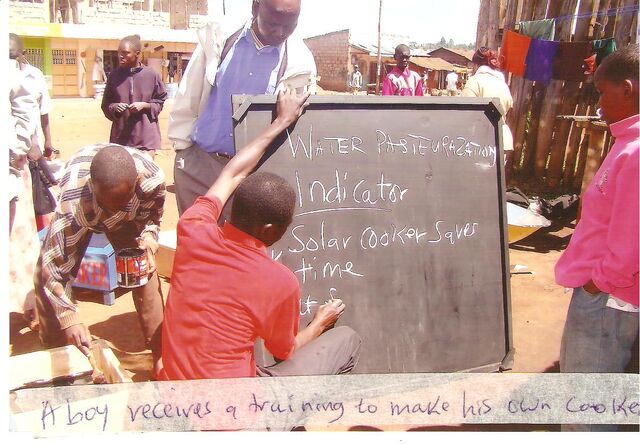 WATER PASTEURAZATION
Indicator
Solar cooker saves
time
A boy receives a training to make his own cooke